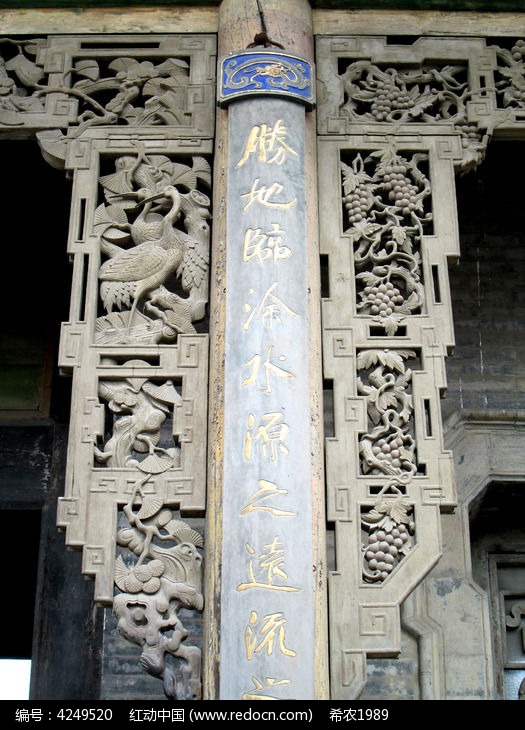 勝地臨涂水源之遠流之
编号：4249520 红动中国 (www.redocn.com) 希农1989